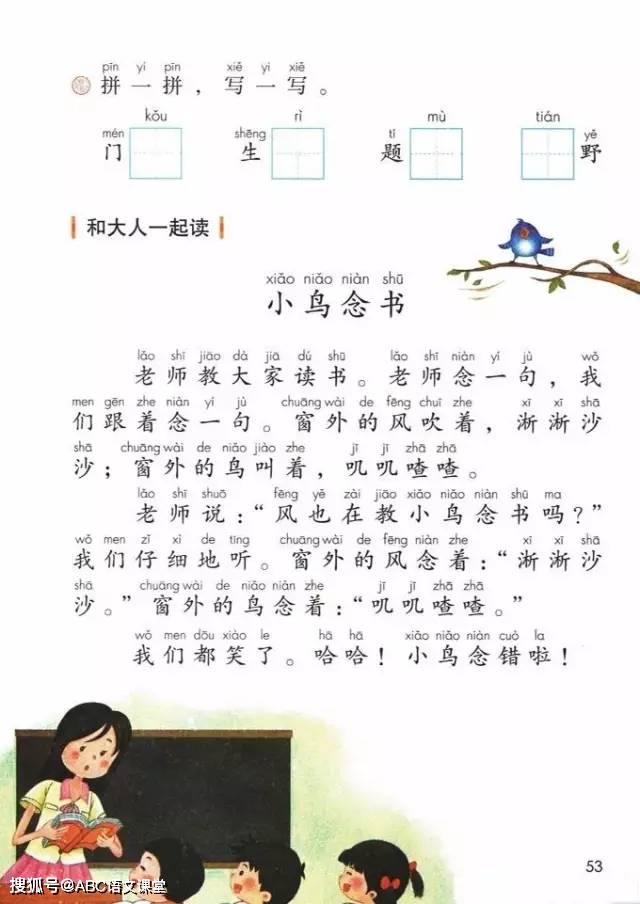 pīn yí pīn xiě yi xiě
拼一拼，写一写。
kǒu rì mù tián
mén shēng tí yě
门 生 题 野
和大人一起读
xiǎo niǎo niàn shū
小鸟念书
lǎo shī jiāo dà jiā dú shū lǎo shī niàn yí jù wǒ
老师教大家读书。老师念一句，我
men gēn zhe niàn yí jù chuāng wài de fēng chuī zhe xī xī shā
们跟着念一句。窗外的风吹着，淅淅沙
shā chuāng wài de niǎo jiào zhe jī jī zhā zhā
沙；窗外的鸟叫着，叽叽喳喳。
lǎo shī shuō fēng yě zài jiāo xiǎo niǎo niàn shū ma
老师说：“风也在教小鸟念书吗？”
wǒ men zǐ xì de tīng chuāng wài de fēng niàn zhe xī xī shā
我们仔细地听。窗外的风念着：“淅淅沙
shā chuāng wài de niǎo niàn zhe jī jī zhā zhā
沙。”窗外的鸟念着：“叽叽喳喳。”
wǒ men dōu xiào le hā hā xiǎo niǎo niàn cuò la
我们都笑了。哈哈！小鸟念错啦！
53
搜狐号@ABC语文课堂